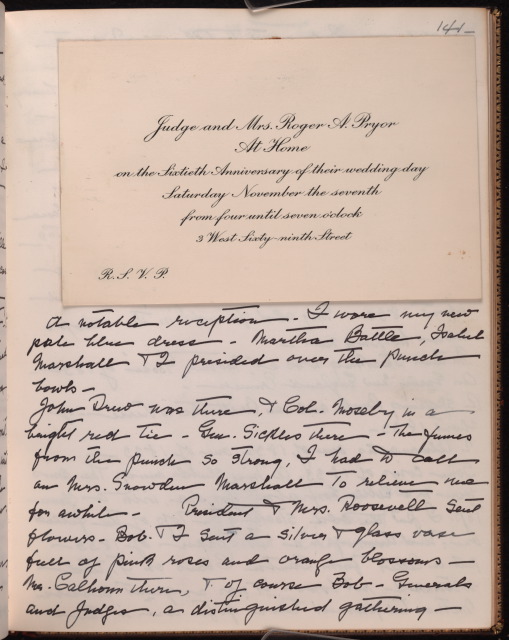 144-
Judge and Mrs. Roger A. Pryor
At Home
on the Sixtieth Anniversary of their wedding day
Saturday November the seventh
from four until seven o'clock
3 West Sixty-ninth Street
R. S. V. P.
A notable reception - I wore my new
pale blue dress - Martha Battle, Isabel
Marshall & I presided over the Punch
bowls -
John Drew was there, & Col. Moseby in a
bright red tie - Gen. Sickles there - The fumes
from the punch so strong, I had to call
on Mrs. Snowden Marshall to relieve me
for awhile - President & Mrs. Roosevelt sent
flowers - Bob. & I sent a silver & glass vase
full of pink roses and orange blossoms -
Mr. Calhoun there, & of course Bob - Generals
and Judges, a distinguished gathering -